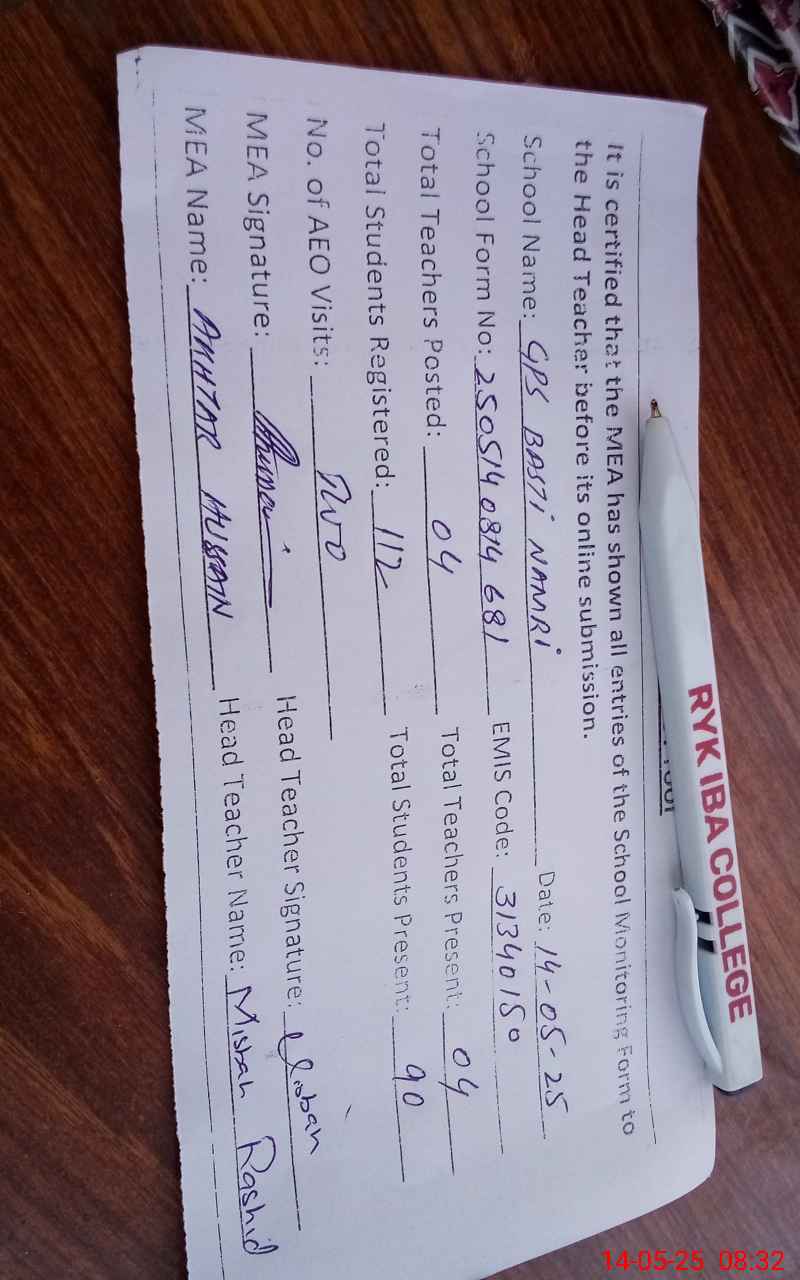 It is certified that the MEA has shown all entries of the School Monitoring Form to
the Head Teacher before its online submission.
School Name: GPS BASTI NAMRI Date: 14-05-25
School Form No: 250514 0814 681 EMIS Code: 31340150
Total Teachers Posted: 04 Total Teachers Present: 04
Total Students Registered: 112 Total Students Present: 90
No. of AEO Visits: TWO
MEA Signature: Head Teacher Signature: Misbah
MEA Name: AKHTAR HUSSAIN Head Teacher Name: Misbah Rashid
RYK IBA COLLEGE
14-05-25 08:32